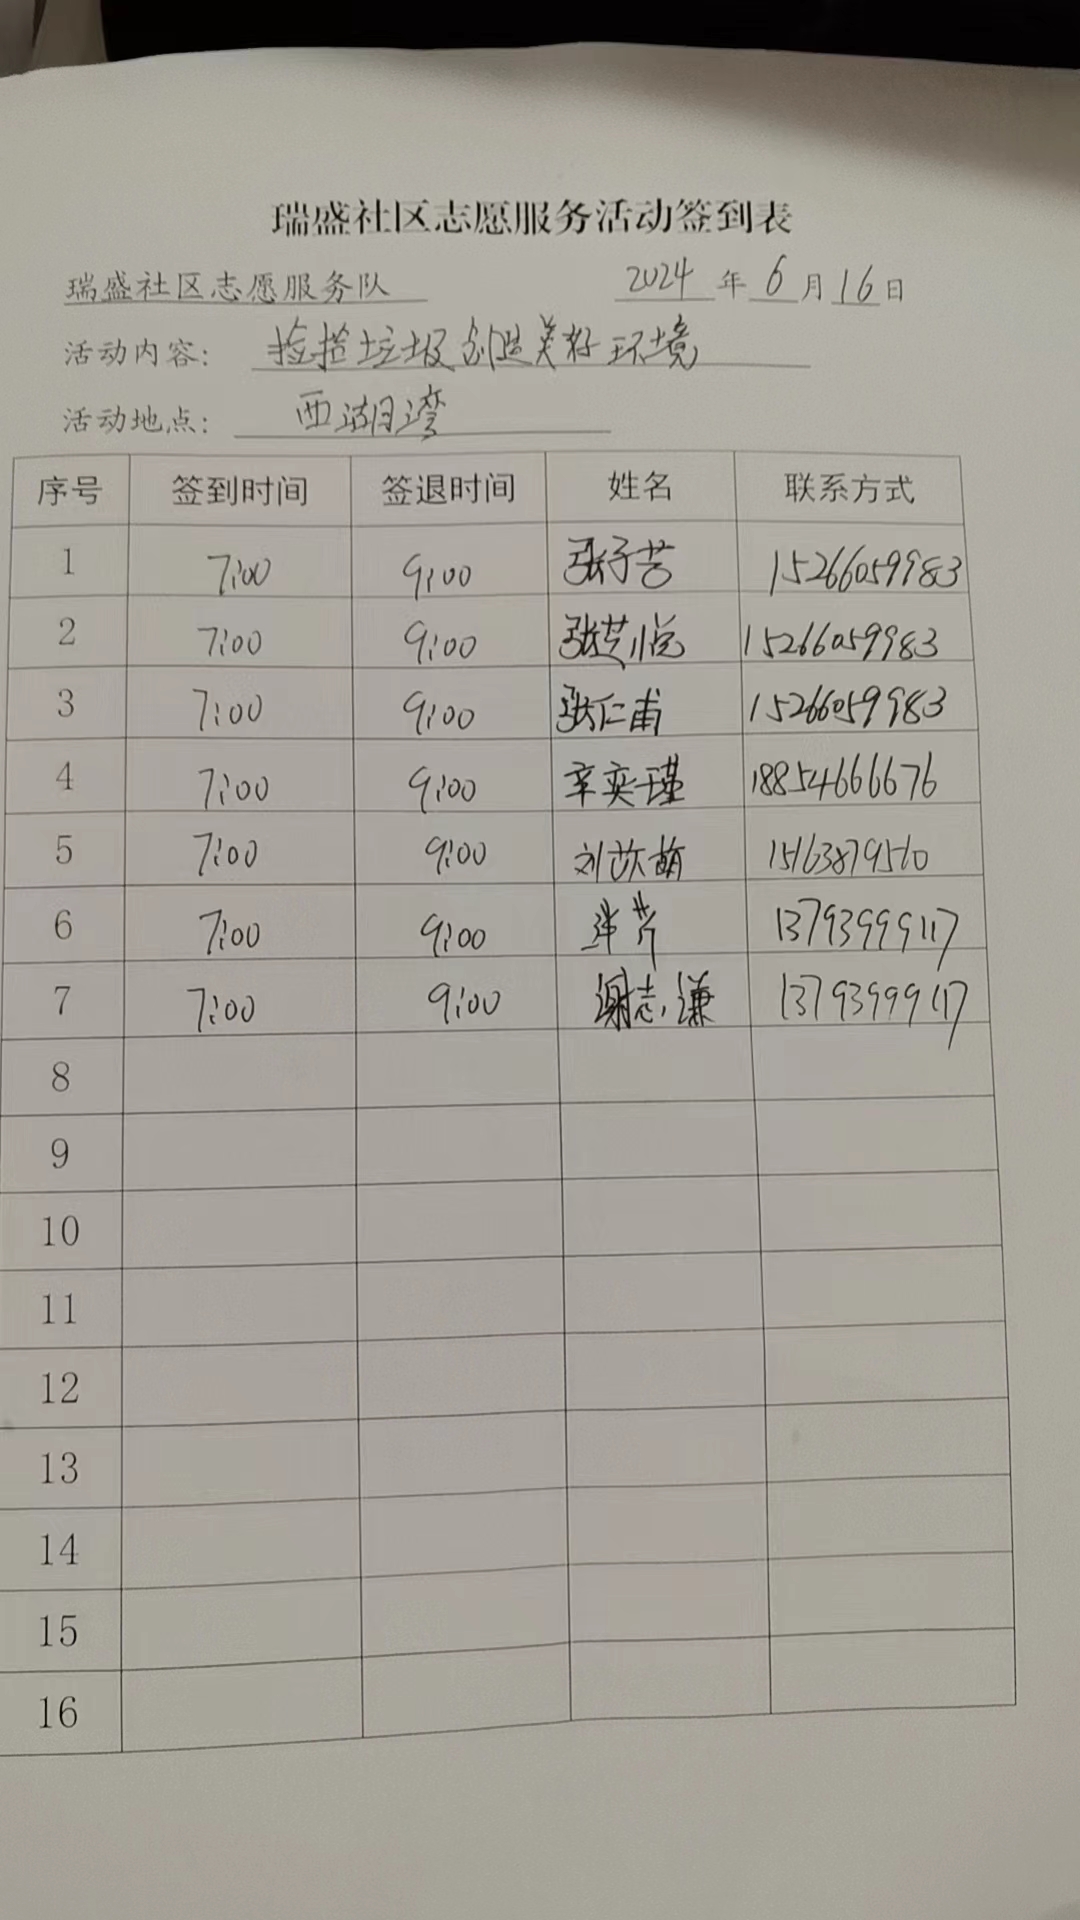 瑞盛社区志愿服务活动签到表
瑞盛社区志愿服务队 2024 年 6 月 16 日
活动内容: 捡拾垃圾创造美好环境
活动地点: 西湖湾
序号 签到时间 签退时间 姓名 联系方式
1 7:00 9:00 张子苦 15266059983
2 7:00 9:00 张芝悦 15266059983
3 7:00 9:00 张仁甫 15266059983
4 7:00 9:00 辛奕瑾 18854666676
5 7:00 9:00 刘 萌 15163879510
6 7:00 9:00 芹 13793999117
7 7:00 9:00 谢志谦 13793999117
8
9
10
11
12
13
14
15
16